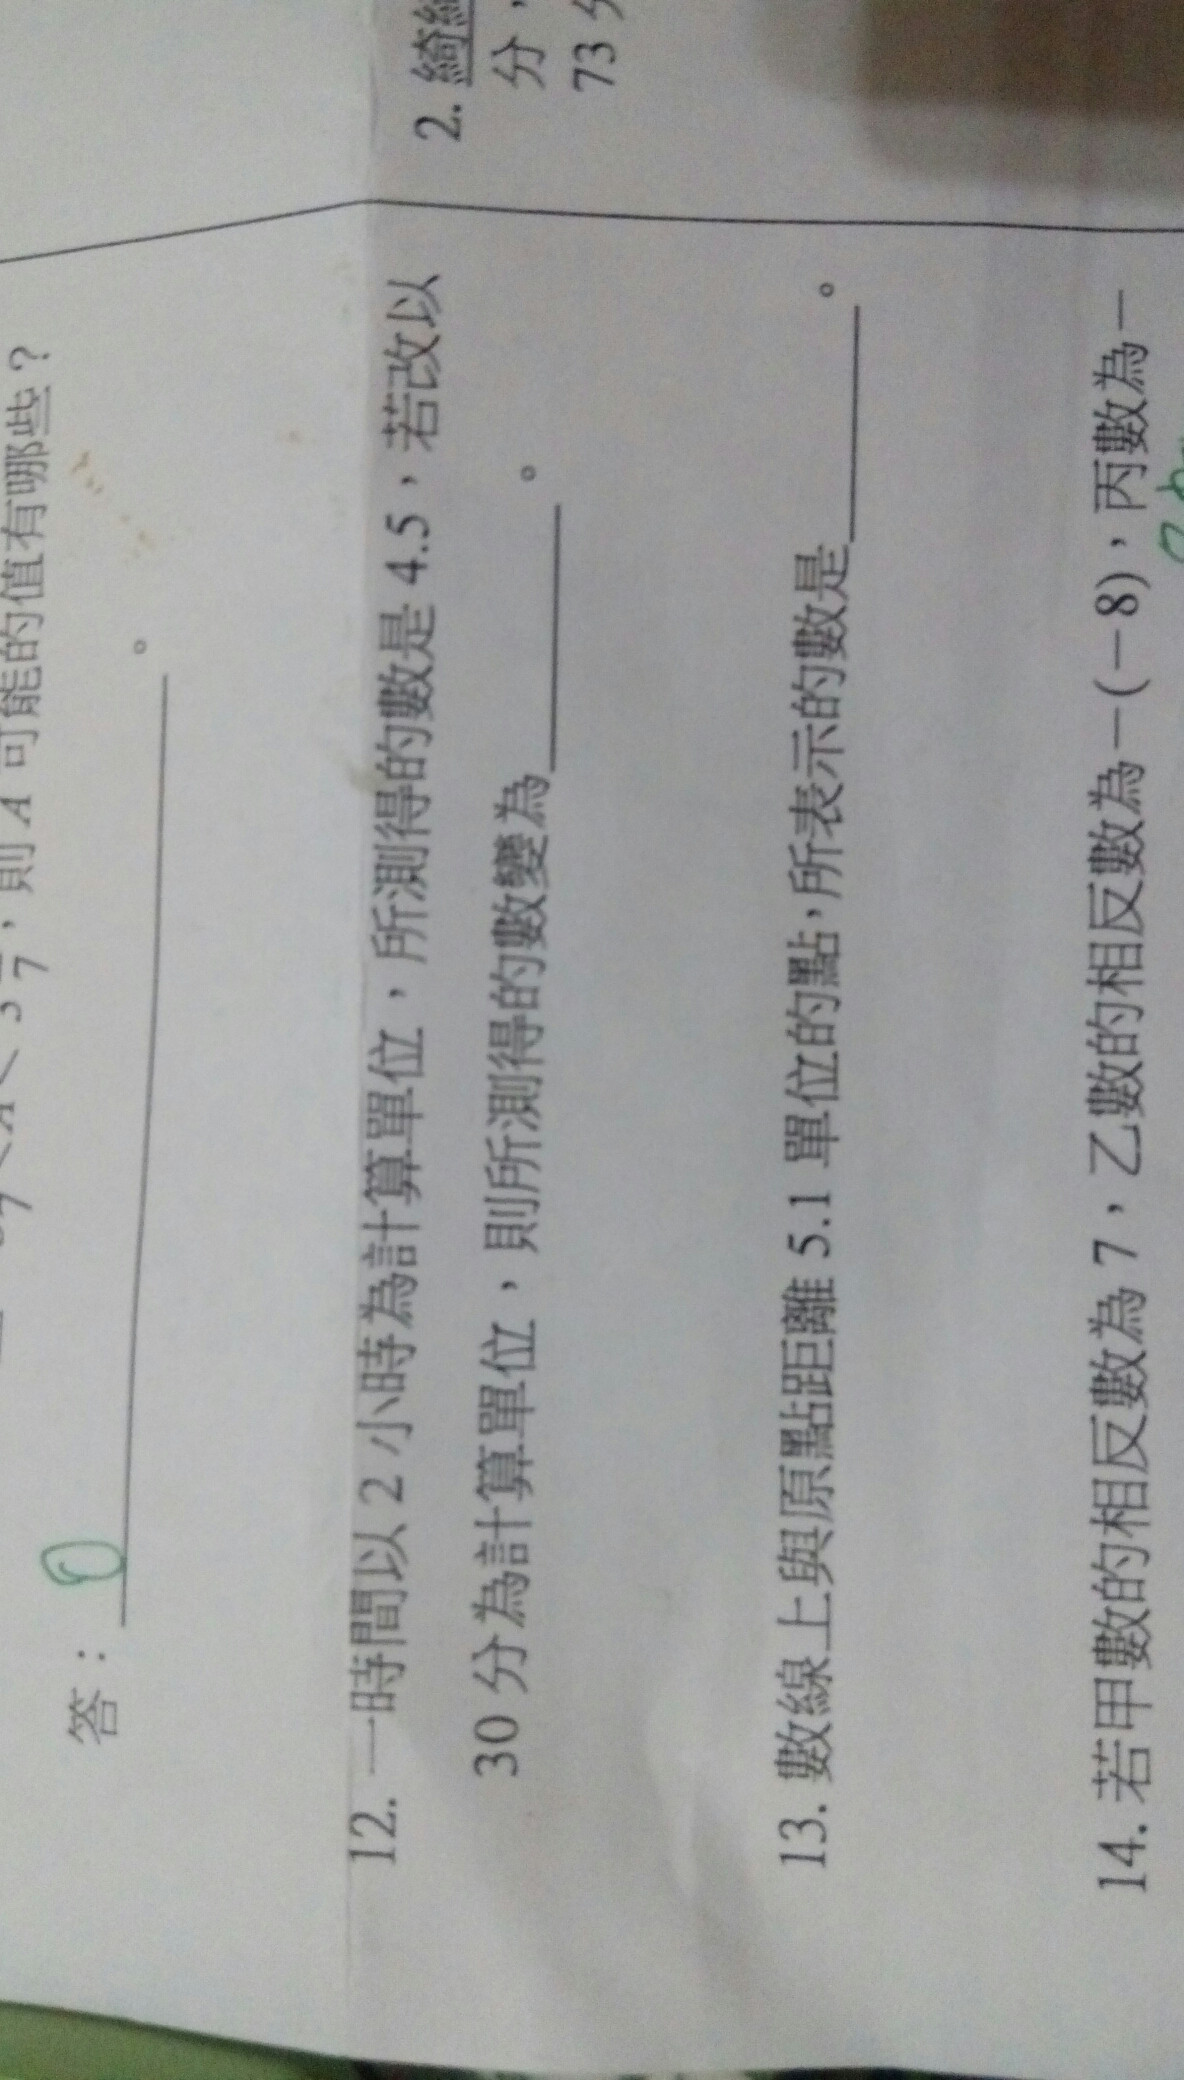 則 A 可能的值有哪些？
答：0 。
12. 一時間以 2 小時為計算單位，所測得的數是 4.5，若改以
30 分為計算單位，則所測得的數變為 。
13. 數線上與原點距離 5.1 單位的點，所表示的數是 。
14. 若甲數的相反數為 7，乙數的相反數為－(－8)，丙數為－
2.
分，
73